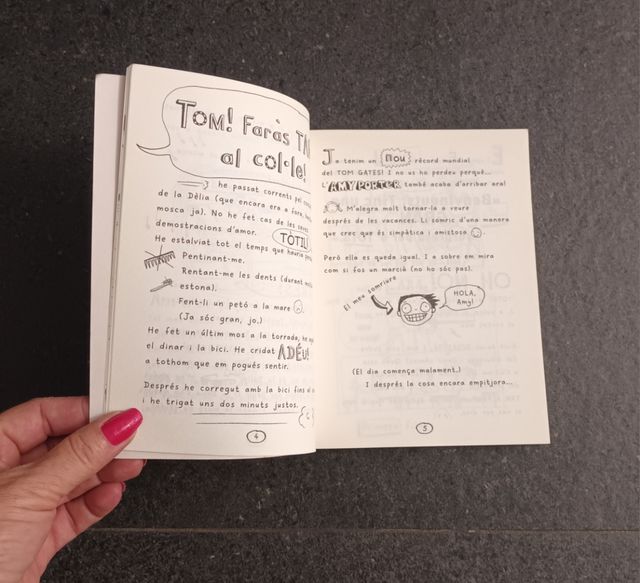 TOM! Faràs TA
al col·le!
he passat corrents pel
de la Dèlia (que encara era a fora,
mosca ja). No he fet cas de les seves
demostracions d'amor. TÒTIL!
He estalviat tot el temps que hauria
Pentinant-me.
Rentant-me les dents (durant molta
estona).
Fent-li un petó a la mare
(Ja sóc gran, jo.)
He fet un últim mos a la torrada, he
el dinar i la bici. He cridat ADÉU!
a tothom que em pogués sentir.
Després he corregut amb la bici fins al
i he trigat uns dos minuts justos.
4
Ja tenim un nou rècord mundial
del TOM GATES! I no us ho perdeu perquè...
L'AMY PORTER també acaba d'arribar ara!
M'alegra molt tornar-la a veure
després de les vacances. Li somric d'una manera
que crec que és simpàtica i amistosa
Però ella es queda igual. I a sobre em mira
com si fos un marcià (no ho sóc pas).
El meu somriure
HOLA,
Amy!
(El dia comença malament.)
I després la cosa encara empitjora...
5